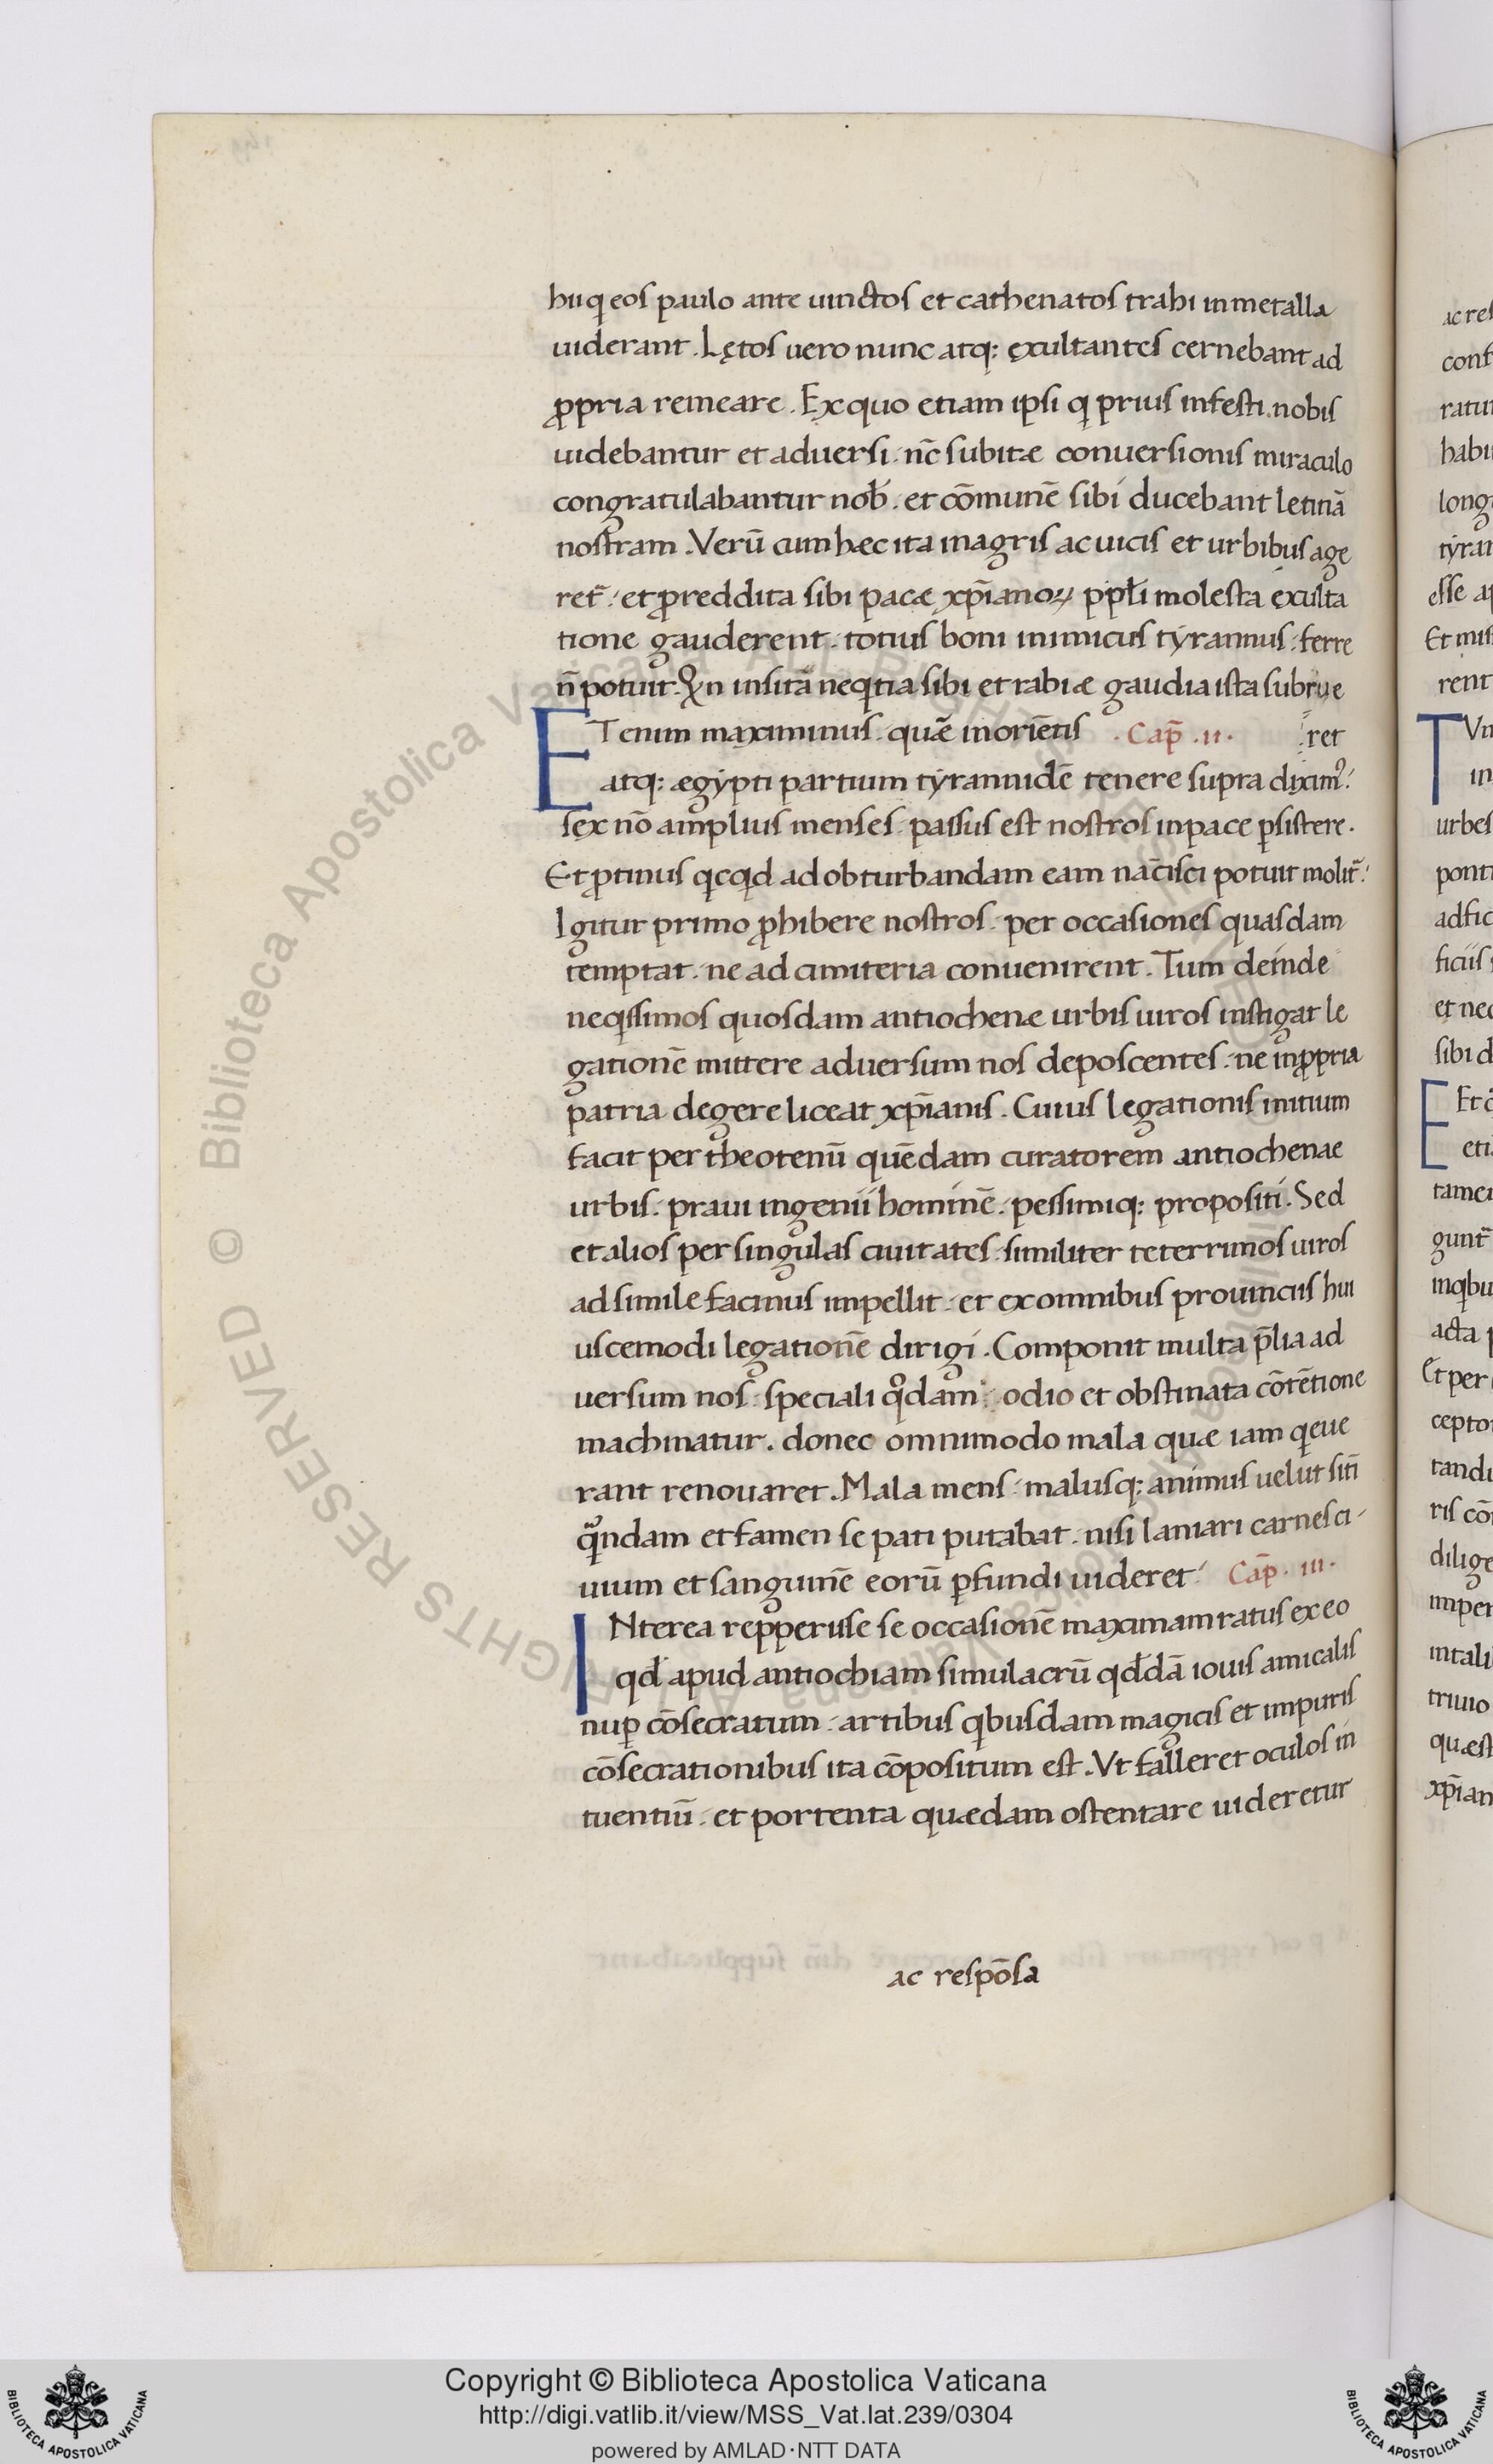 hii q̨ eos paulo ante uinctos et cathenatos trahi in metalla
uiderant. Lętos uero nunc atq: exultantes cernebant ad
ꝓpria remeare. Ex quo etiam ipsi q̨ prius infesti nobis
uidebantur et aduersi. nc̄ subitæ conuersionis miraculo
congratulabantur nob̄. et cōmunē sibi ducebant letitiā
nostram. Verū cum hæc ita in agris ac uicis et urbibus age
ret̄. et ꝓ reddita sibi pace xp̄ianoꝝ pp̄łi molesta exulta
tione gauderent. totius boni inimicus tyrannus. ferre
n̄ potuit. Qn insitā neq̨tia sibi et rabiæ gaudia ista subrue
ETenim maximinus. quē in oriētis · Cap̄ .ii· ret
atq: ægypti partium tyrannidē tenere supra diximꝰ.
sex nō amplius menses. passus est nostros in pace p̱sistere.
Et ꝓtinus q̨cq̨d ad obturbandam eam nācisci potuit molit̄.
Igitur primo ꝓhibere nostros. per occasiones quasdam
temptat. ne ad cimiteria conuenirent. Tum deinde
neq̨ssimos quosdam antiochenæ urbis uiros instigat le
gationē mittere aduersum nos deposcentes. ne in ꝓpria
patria degere liceat xp̄ianis. Cuius legationis initium
facit per theotenū quēdam curatorem antiochenae
urbis. praui ingenii hominē. pessimiq: propositi. Sed
et alios per singulas ciuitates. similiter teterrimos uiros
ad simile facinus impellit. et ex omnibus prouinciis hui
uscemodi legationē dirigi. Componit multa p̄lia ad
uersum nos. speciali qͦdam. odio et obstinata cōtētione
machinatur. donec omnimodo mala quæ iam q̨eue
rant renouaret. Mala mens. malusq: animus uelut siti
qͣndam et famen se pati putabat. nisi laniari carnes ci-
uium et sanguinē eorū ꝑfundi uideret. Cap̄ · iii·
INterea repperisse se occasionē maximam ratus ex eo
qd̄ apud antiochiam simulacrū qd̄dā iouis amicalis
nuꝑ cōsecratum. artibus q̨busdam magicis et impuris
cōsecrationibus ita cōpositum est. Vt falleret oculos in
tuentiū. et portenta quædam ostentare uideretur
ac respōsa
Copyright © Biblioteca Apostolica Vaticana
http://digi.vatlib.it/view/MSS_Vat.lat.239/0304
powered by AMLAD·NTT DATA